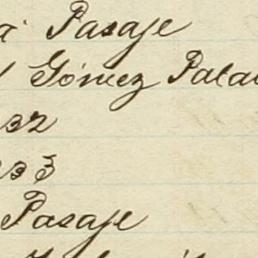 a Pasaje
Gómez Pala
32
33
Pasaje